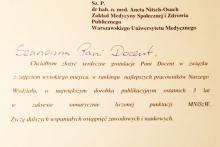 Sz. P.
dr hab. n. med. Aneta Nitsch-Osuch
Zakład Medycyny Społecznej i Zdrowia
Publicznego
Warszawskiego Uniwersytetu Medycznego
Szanowna Pani Docent,
Chciałbym złożyć serdeczne gratulacje Pani Docent w związku
z zajęciem wysokiego miejsca, w rankingu najlepszych pracowników Naszego
Wydziału, o największym dorobku publikacyjnym ostatnich 3 lat
w zakresie sumarycznie liczonej punktacji MNiSzW.
Życzę dalszych wspaniałych osiągnięć zawodowych i naukowych.